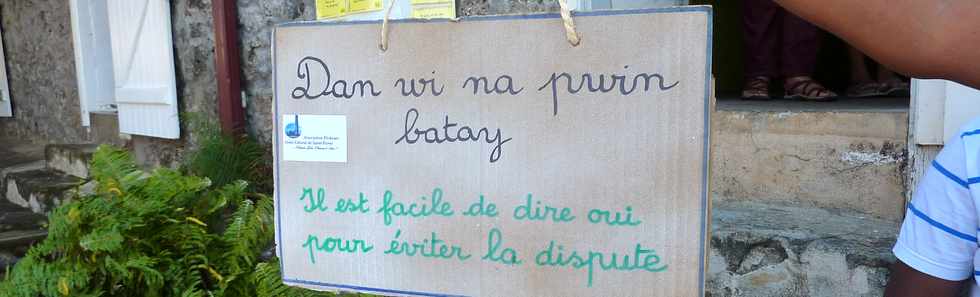 Dan wi na pwin
batay
Il est facile de dire oui
pour éviter la dispute